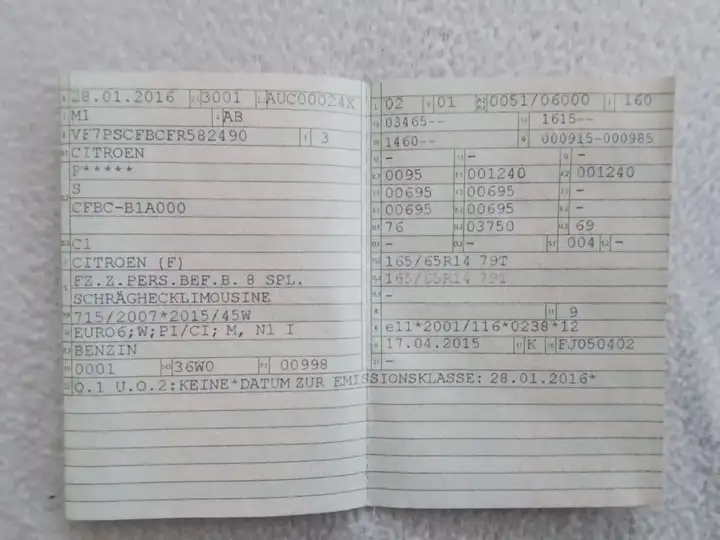 28.01.2016 3001 AUC00024X
M1 AB
VF7PSCFBCFR582490 3
CITROEN
P*****
S
CFBC-B1A000
C1
CITROEN (F)
FZ.Z.PERS.BEF.B. 8 SPL.
SCHRÄGHECKLIMOUSINE
715/2007*2015/45W
EURO6;W;PI/CI; M, N1 I
BENZIN
0001 36W0 00998
Q.1 U.O.2:KEINE*DATUM ZUR EMISSIONSKLASSE: 28.01.2016*
02 01 0051/06000 160
03465-- 1615--
1460-- 000915-000985
- - -
0095 001240 001240
00695 00695 -
00695 00695 -
76 03750 69
- - 004 -
165/65R14 79T
165/65R14 79T
-
9
e11*2001/116*0238*12
17.04.2015 K FJ050402
-